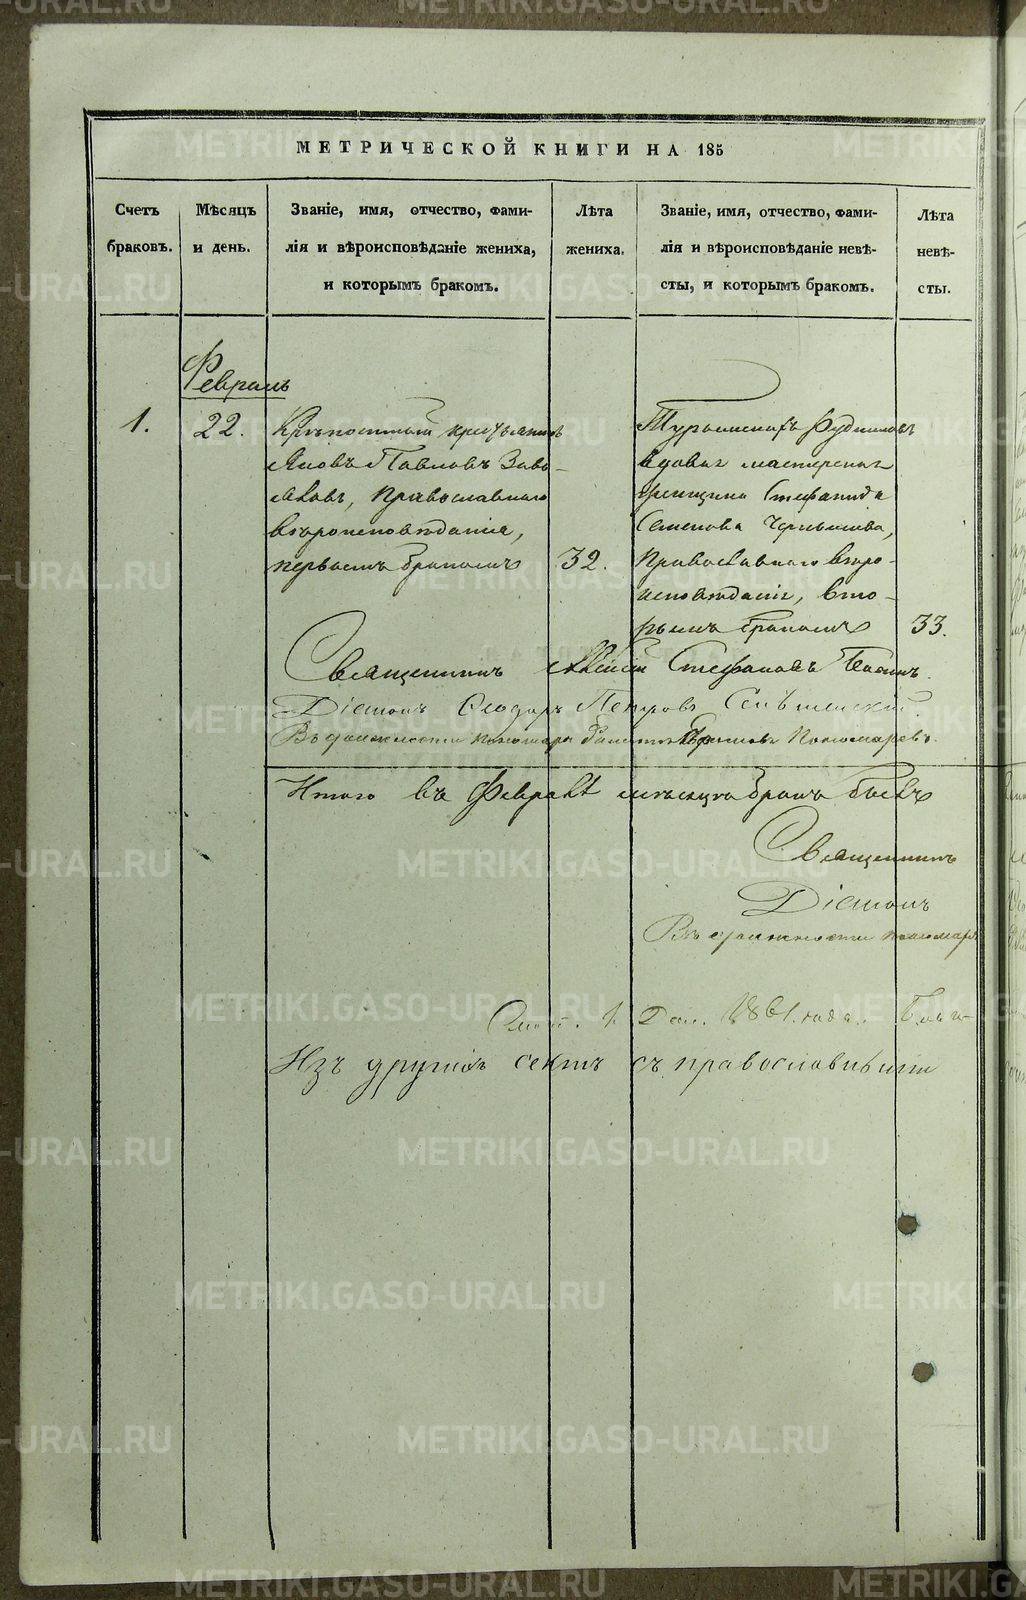 МЕТРИЧЕСКОЙ КНИГИ НА 185
Счетъ браковъ.
Мѣсяцъ и день.
Званіе, имя, отчество, фами-
лія и вѣроисповѣданіе жениха,
и которымъ бракомъ.
Лѣта
жениха.
Званіе, имя, отчество, фами-
лія и вѣроисповѣданіе невѣ-
сты, и которымъ бракомъ.
Лѣта
невѣ-
сты.
Февраль
1.
22.
Крѣпостный крестьянинъ
Яковъ Павловъ
Православнаго
вѣроисповѣданія,
первымъ бракомъ
32.
вдова мастерская
женщина Стефанида
Семенова Чернышева,
Православнаго вѣро-
исповѣданія, вто-
рымъ бракомъ
33.
Священникъ Стефановъ
Діаконъ Ѳеодоръ Петровъ
Въ должности пономаря Пономаревъ.
Итого въ Февралѣ мѣсяцѣ бракъ былъ
Священникъ
Діаконъ
Въ должности пономаря
1861 года.
Изъ другихъ сектъ съ православными
METRIKI.GASO-URAL.RU